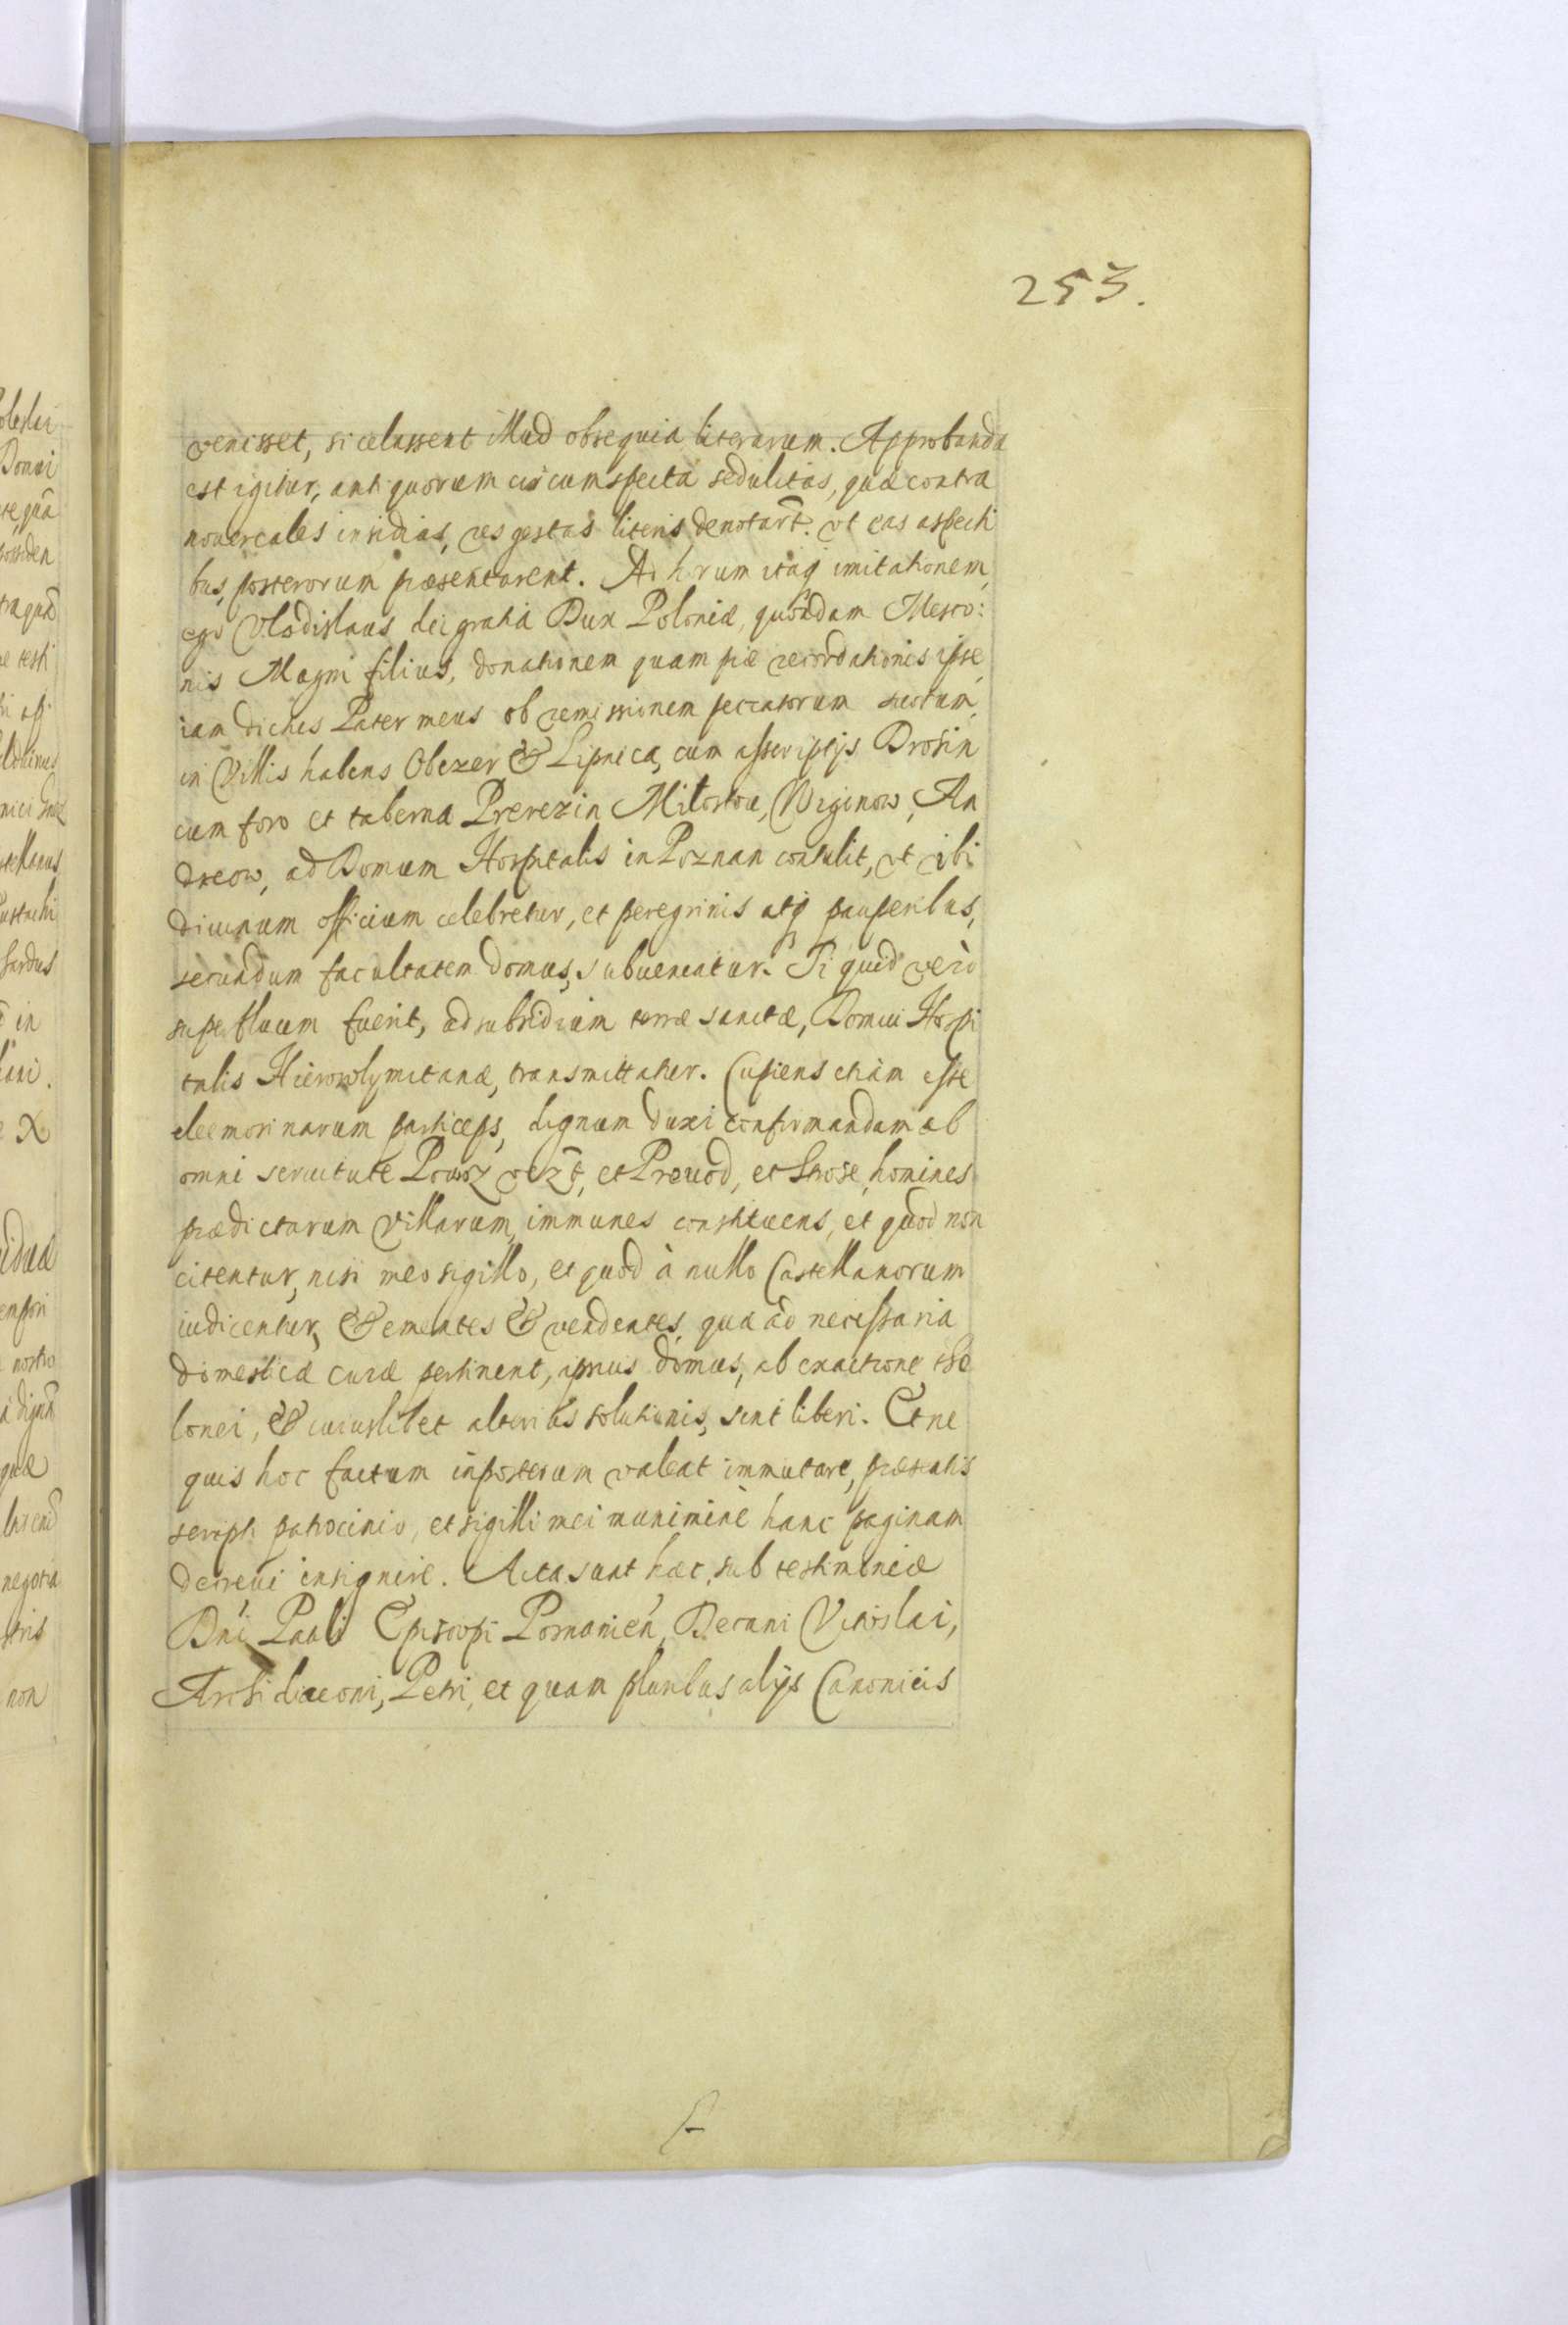 253.
venisset, si celassent illud obsequia literarum. Approbanda
est igitur, antiquorum circumspecta sedulitas, quæ contra
nouercales insidias, res gestas literis denotar̃t. vt eas aspecti
bus, posterorum præsentarent. Ad horum itaq imitationem,
ego Vladislaus dei gratia Dux Poloniæ, quondam Mesco:
nis Magni filius, donationem quam piæ recordationis ipse,
iam dictus Pater meus ob remissionem peccatorum suorum,
in Villis habens Obezer & Lipnica, cum asscriptijs Drosin
cum foro et taberna Prerezin Milostou, Wiginow, An
dreow, ad Domum Hospitalis in Poznan contulit, vt ibi
diuinum officium celebretur, et peregrinis atq pauperibus,
secundum facultatem domus, subueniatur. Si quid verò
superfluum fuerit, ad subsidium terræ sanctæ, Domui Hospi
talis Hierosolymitanæ, transmittatur. Cupiens etiam esse
eleemosinarum particeps, dignum duxi confirmandam ab
omni seruitute Powoz et Preuod, et Strose, homines
prædictarum Villarum, immunes constituens, et quod non
citentur, nisi meo sigillo, et quod à nullo Castellanorum
iudicentur, & ementes & vendentes, quæ ad necessaria
domesticæ curæ pertinent, ipsius domus, ab exactione the
lonei, & cuiuslibet alterius solutionis, sint liberi. Et ne
quis hoc factum inposterum valeat immutare, præsentis
scripti patrocinio, et sigilli mei munimine hanc paginam
decreui insignire. Acta sunt hæc, sub testimonio
Dni Pauli Episcopi Posnanien, Decani Vitoslai,
Archidiaconi, Petri, et quam pluribus alijs Canonicis